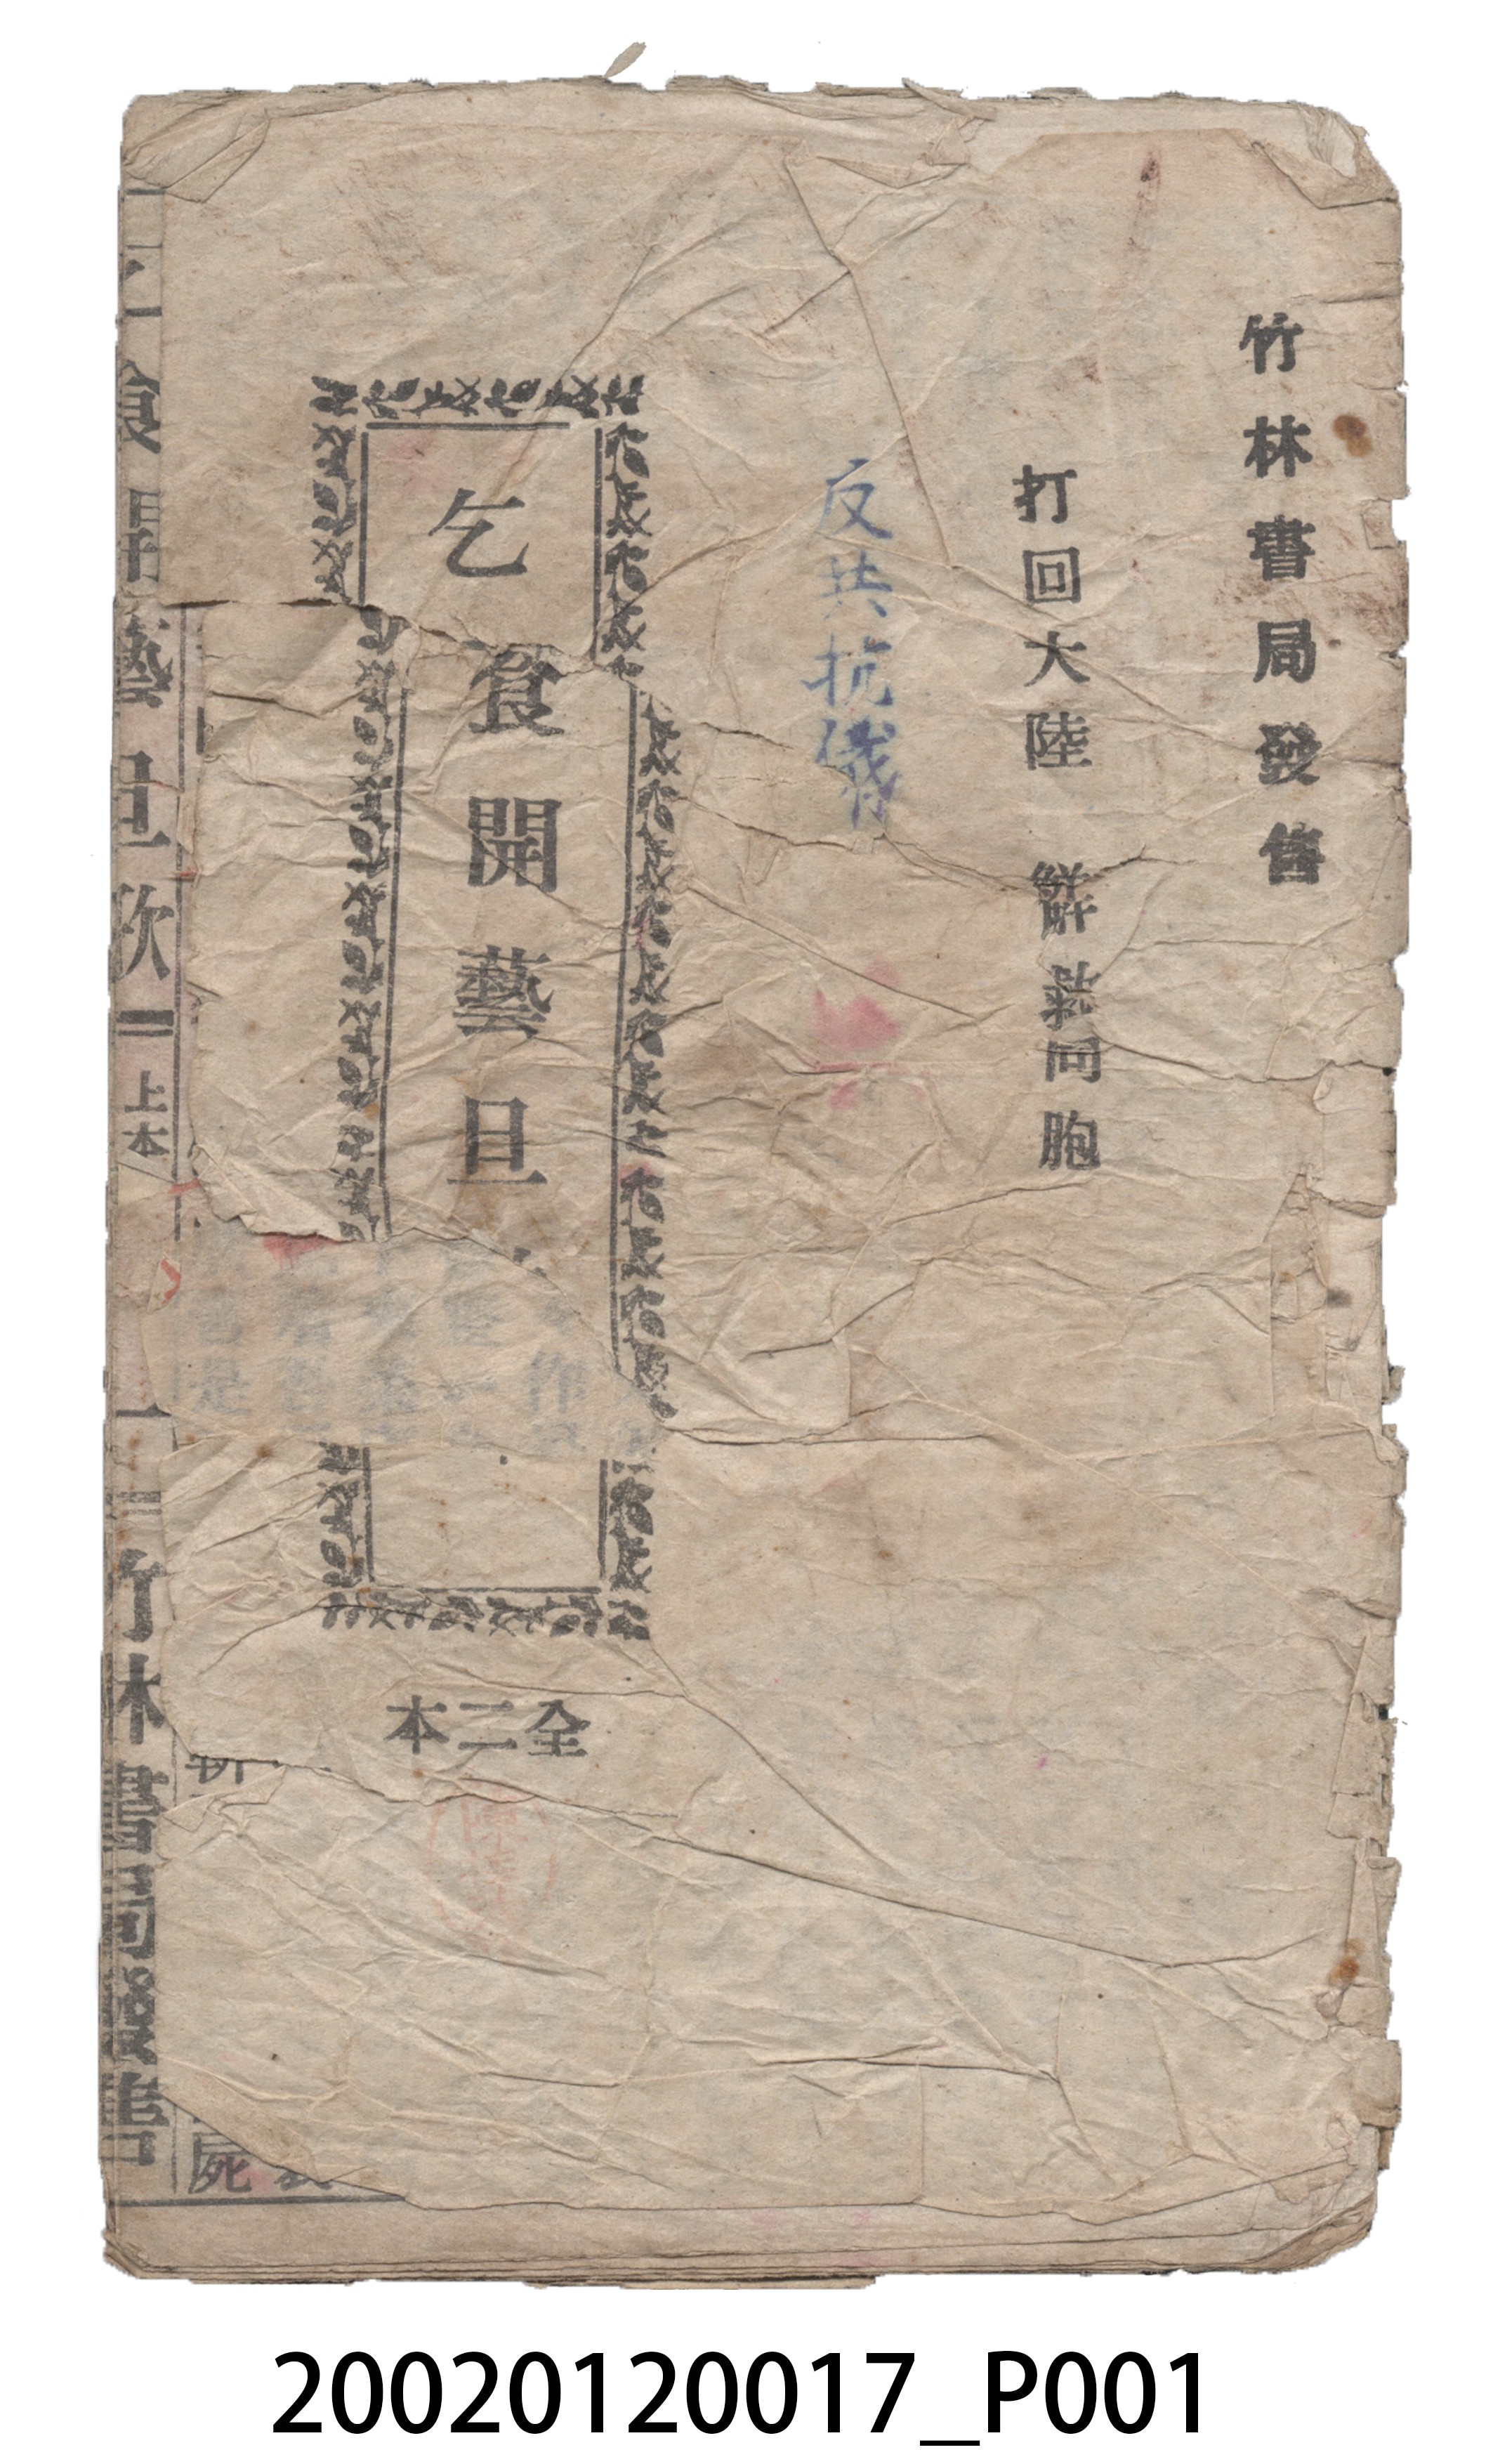 竹林書局發售
打回大陸 解救同胞
反共抗俄
乞食開藝旦
全二本
乞食開藝旦歌
上本
竹林書局發售
陳
20020120017_P001